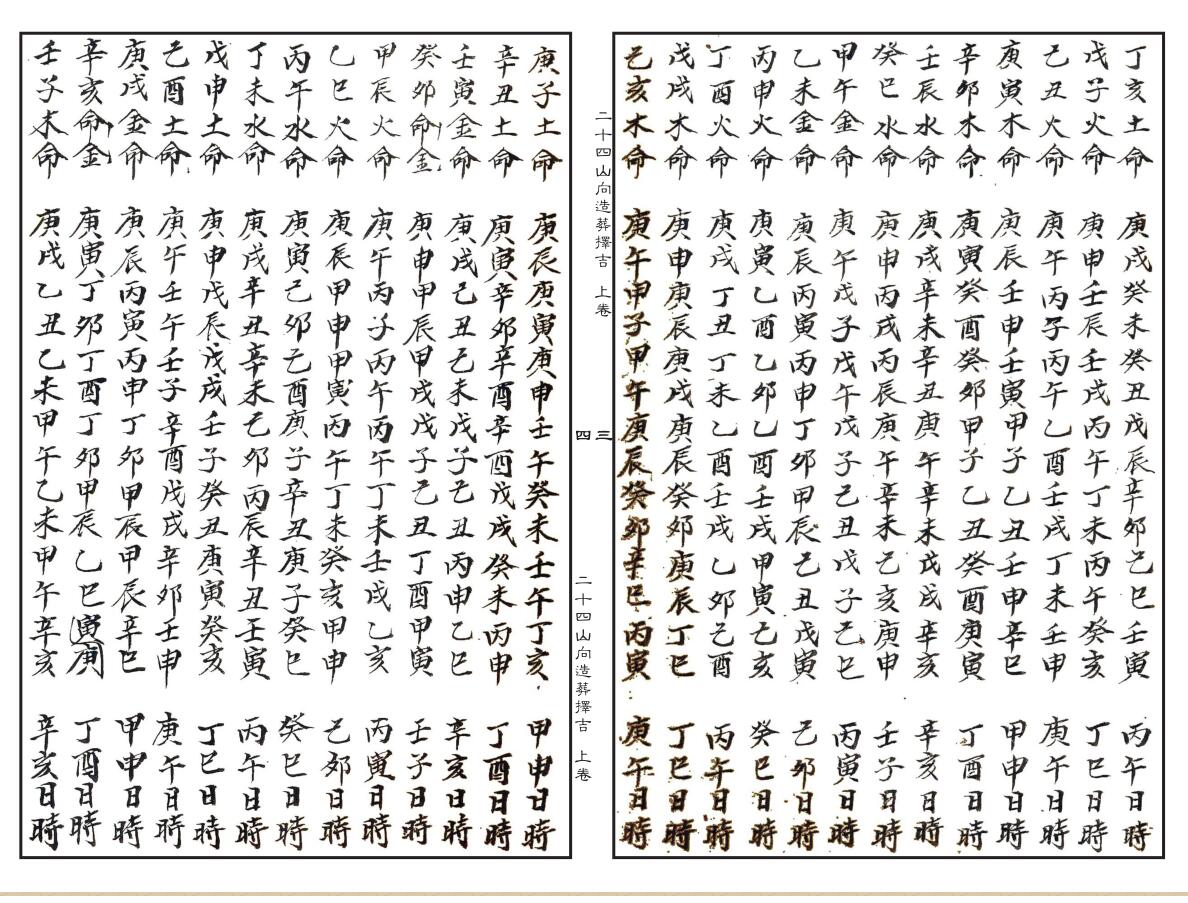 丁亥土命 庚戌癸未癸丑戊辰辛卯己巳壬寅 丙午日時
戊子火命 庚申壬辰壬戌丙午丁未丙午癸亥 丁巳日時
己丑火命 庚午丙子丙午乙酉壬戌丁未壬申 庚午日時
庚寅木命 庚辰壬申壬寅甲子乙丑壬申辛巳 甲申日時
辛卯木命 庚寅癸酉癸卯甲子乙丑癸酉庚寅 丁酉日時
壬辰水命 庚戌辛未辛丑庚午辛未戊戌辛亥 辛亥日時
癸巳水命 庚申丙戌丙辰庚午辛未己亥庚申 壬子日時
甲午金命 庚午戊子戊午戊子己丑戊子乙巳 丙寅日時
乙未金命 庚辰丙寅丙申丁卯甲辰己丑戊寅 己卯日時
丙申火命 庚寅乙酉乙卯乙酉壬戌甲寅乙亥 癸巳日時
丁酉火命 庚戌丁丑丁未乙酉壬戌乙卯己酉 丙午日時
戊戌木命 庚申庚辰庚戌庚辰癸卯庚辰丁巳 丁巳日時
己亥木命 庚午甲子甲午庚辰癸卯辛巳丙寅 庚午日時
二十四山向造葬擇吉 上卷
三
四
二十四山向造葬擇吉 上卷
庚子土命 庚辰庚寅庚申壬午癸未壬午丁亥 甲申日時
辛丑土命 庚寅辛卯辛酉辛酉戊戌癸未丙申 丁酉日時
壬寅金命 庚戌己丑己未戊子己丑丙申乙巳 辛亥日時
癸卯命金 庚申甲辰甲戌戊子己丑丁酉甲寅 壬子日時
甲辰火命 庚午丙子丙午丙午丁未壬戌乙亥 丙寅日時
乙巳火命 庚辰甲申甲寅丙午丁未癸亥甲申 己卯日時
丙午水命 庚寅己卯己酉庚子辛丑庚子癸巳 癸巳日時
丁未水命 庚戌辛丑辛未己卯丙辰辛丑壬寅 丙午日時
戊申土命 庚申戊辰戊戌壬子癸丑庚寅癸亥 丁巳日時
己酉土命 庚午壬午壬子辛酉戊戌辛卯壬申 庚午日時
庚戌金命 庚辰丙寅丙申丁卯甲辰甲辰辛巳 甲申日時
辛亥命金 庚寅丁卯丁酉丁卯甲辰乙巳寅庚 丁酉日時
壬子木命 庚戌乙丑乙未甲午乙未甲午辛亥 辛亥日時